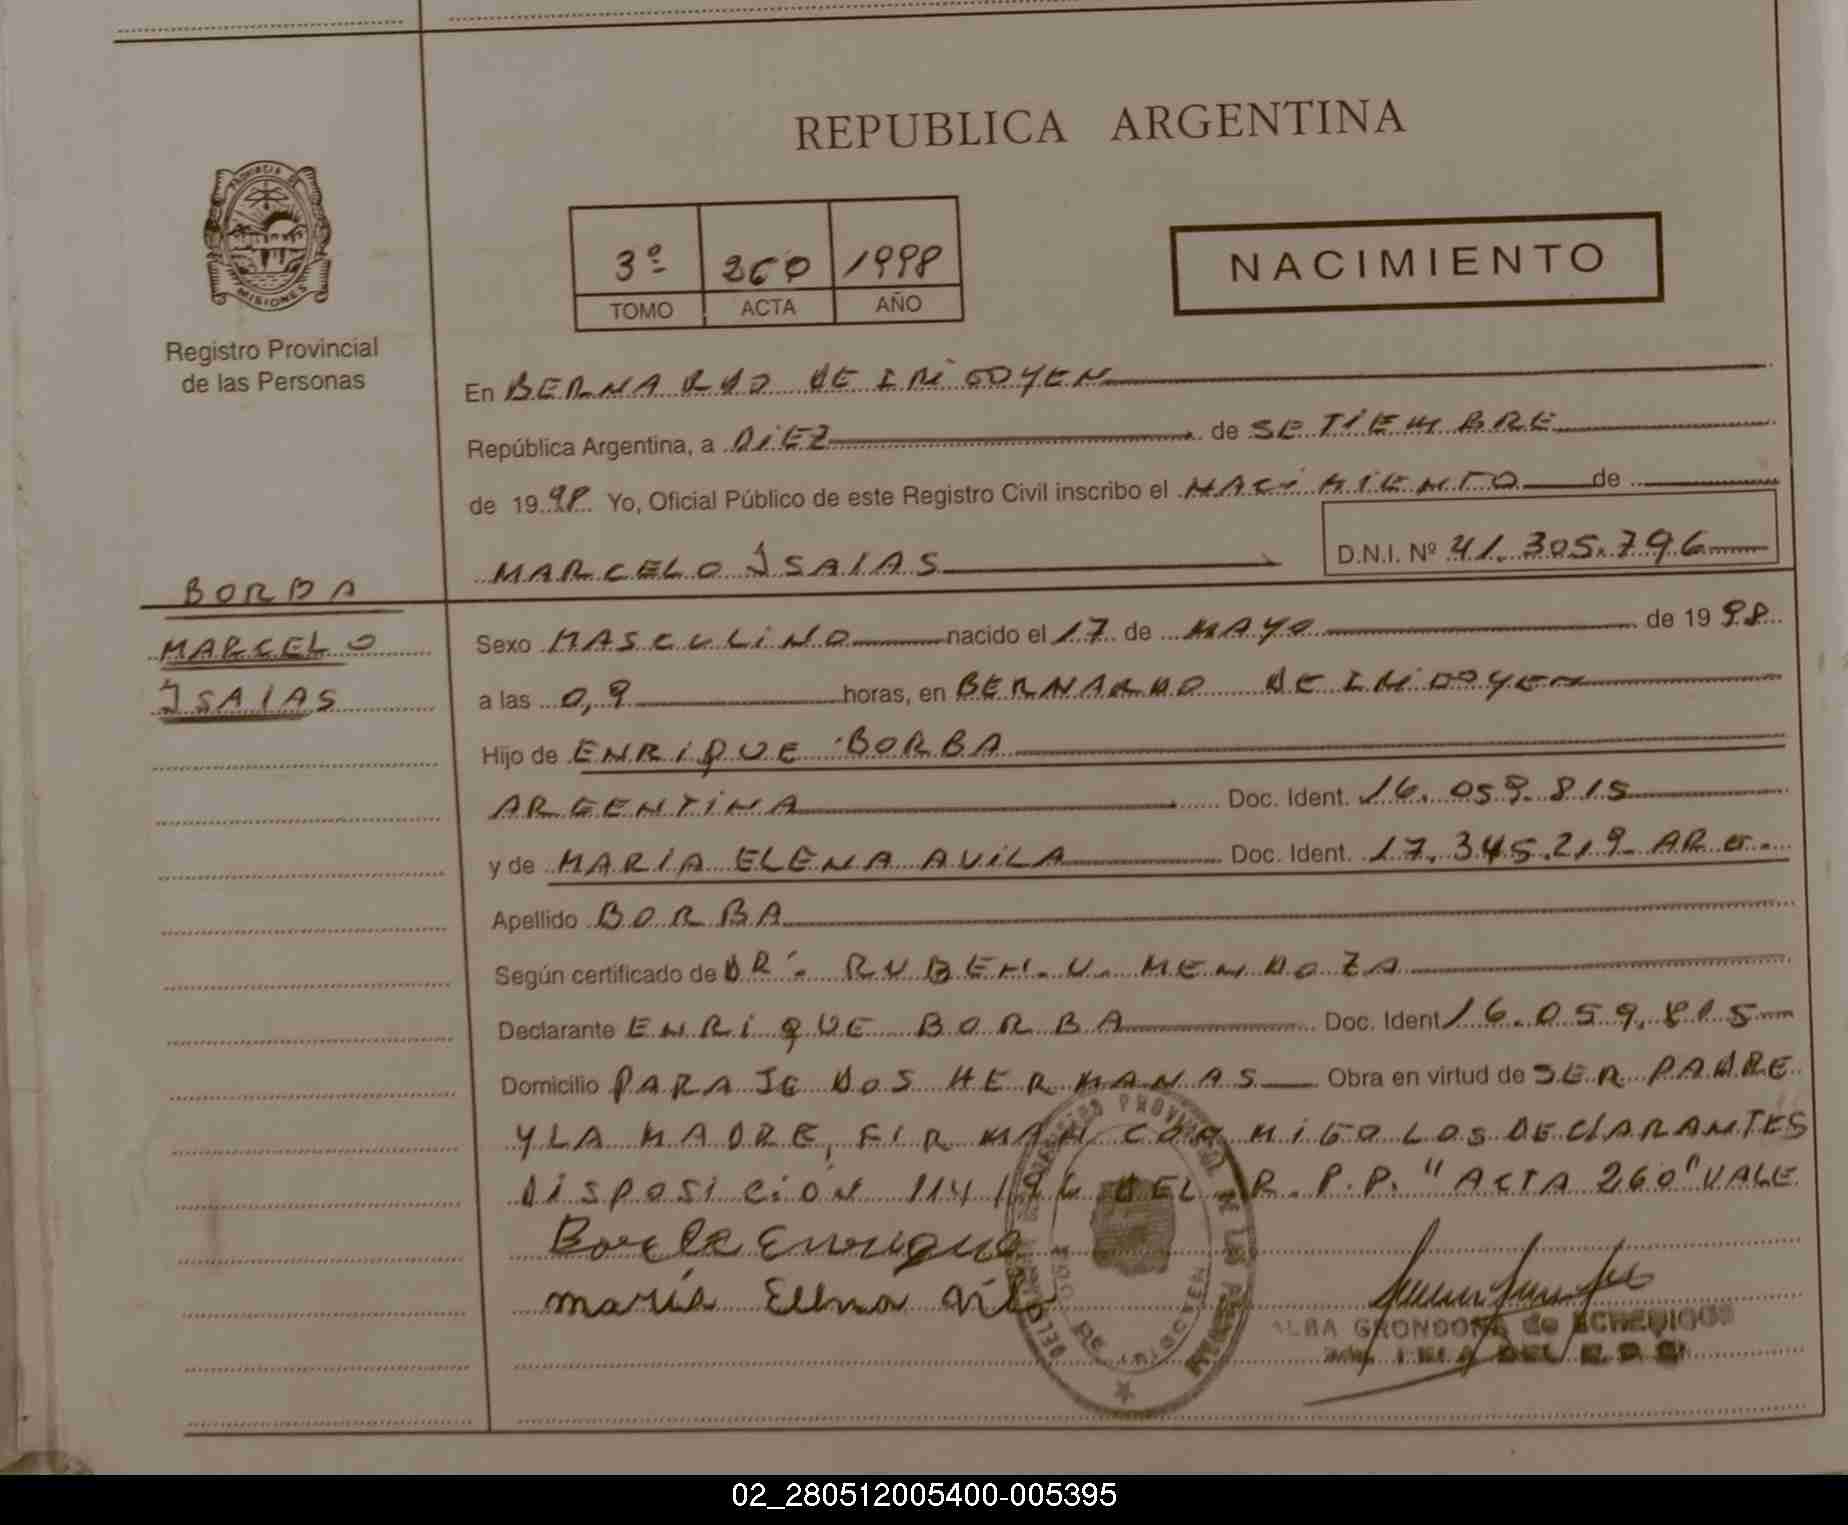 REPUBLICA ARGENTINA
PROVINCIA DE
MISIONES
Registro Provincial
de las Personas
3º 260 1998
TOMO ACTA AÑO
NACIMIENTO
En BERNARDO DE IRIGOYEN
República Argentina, a DIEZ de SETIEMBRE
de 1998 Yo, Oficial Público de este Registro Civil inscribo el NACIMIENTO de
MARCELO ISAIAS D.N.I. Nº 41.305.796
BORBA
MARCELO
ISAIAS
Sexo MASCULINO nacido el 17 de MAYO de 1998
a las 0,9 horas, en BERNARDO DE IRIGOYEN
Hijo de ENRIQUE BORBA
ARGENTINA Doc. Ident. 16.059.815
y de MARIA ELENA AVILA Doc. Ident. 17.345.219 ARG.
Apellido BORBA
Según certificado de DR. RUBEN. U. MENDOZA
Declarante ENRIQUE BORBA Doc. Ident 16.059.815
Domicilio PARAJE DOS HERMANAS Obra en virtud de SER PADRE
Y LA MADRE, FIRMAN CONMIGO LOS DECLARANTES
DISPOSICIÓN 114/96 DEL R.P.P. "ACTA 260" VALE
Enrique
maría Ellna
ALBA GRONDONA de
02_280512005400-005395